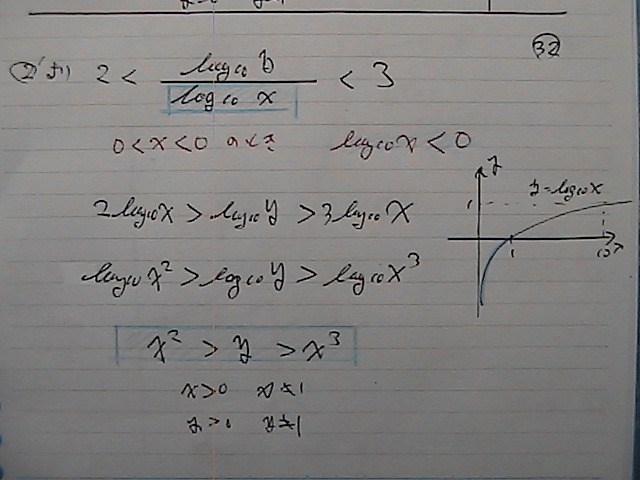 32
②'より 2 < log₁₀ y / log₁₀ x < 3
0 < x < 0 のとき log₁₀ x < 0
2 log₁₀ x > log₁₀ y > 3 log₁₀ x
log₁₀ x² > log₁₀ y > log₁₀ x³
x² > y > x³
x > 0 x ≠ 1
y > 0 y ≠ 1
y
y = log₁₀ x
1
1 10 x